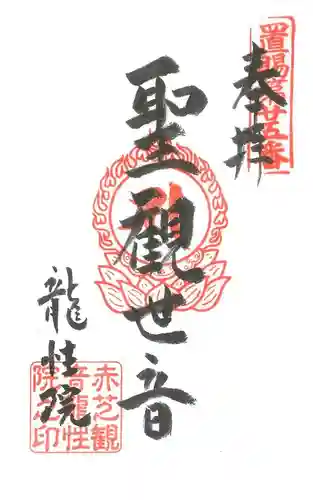 置賜第廿五番
奉拝
聖観世音
龍性院
赤芝観
音龍性
院之印